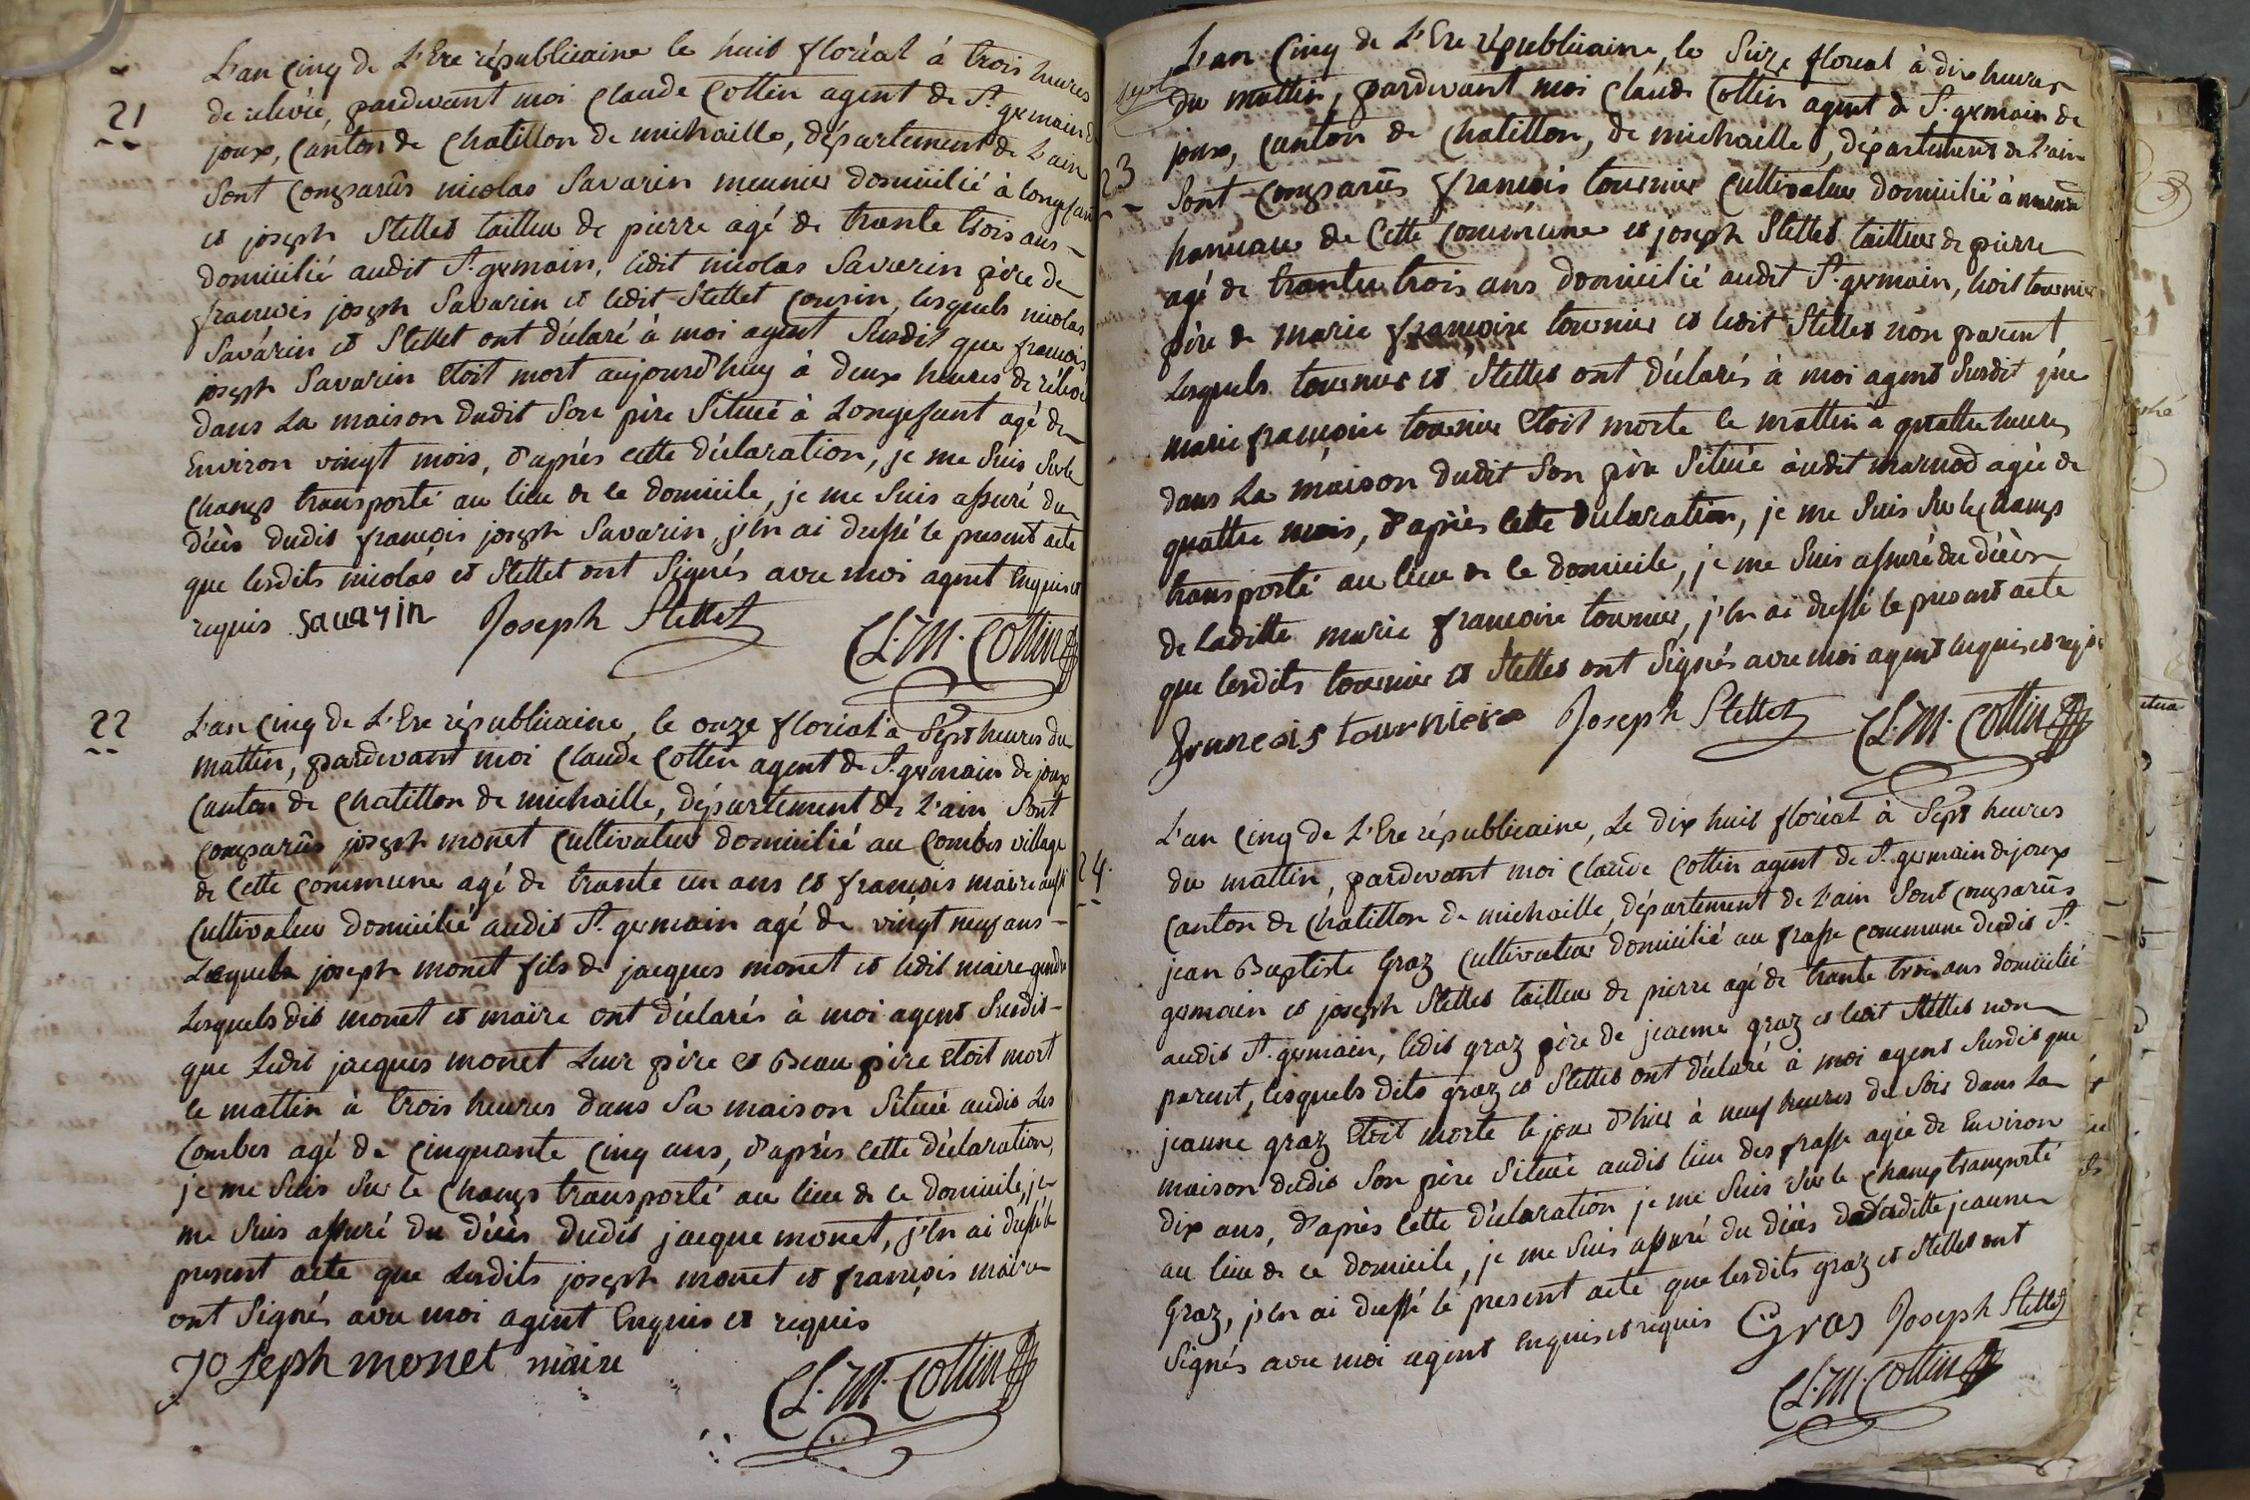 21
L'an cinq de L'Ere républicaine le huit floréal à trois heures
de relevée, pardevant moi Claude Cottin agent de St. germain de
joux, Canton de Chatillon de michaille, département de L'ain
Sont Comparûs nicolas Savarin meunier domicilié à longefant
et joseph Stellet tailleur de pierre agé de trante trois ans -
domicilié audit St. germain, ledit nicolas Savarin père de
francois joseph Savarin et ledit Stellet Cousin, lesquels nicolas
Savarin et Stellet ont déclaré à moi agent Susdit que francois
joseph Savarin etoit mort aujourd'huy à deux heures de rélevée
dans La maison dudit Son père Situé à Longefant agé de
Environ vingt mois, d'après cette déclaration, je me Suis Sur le
Champ transporté au lieu de ce domicile, je me Suis assuré du
décès dudit françois joseph Savarin, j'en ai dressé le present acte
que lesdits nicolas et Stellet ont Signés avec moi agent Enquis et
requis Savarin Joseph Stellet
Cl. M. Cottin
22
L'an Cinq de L'Ere républicaine, le onze floréal à Sept heures du
mattin, pardevant moi Claude Cottin agent de St. germain de joux
Canton de Chatillon de michaille, département de L'ain Sont
Comparûs joseph monet Cultivateur domicilié au Combes village
de Cette Commune agé de trante un ans et françois maire aussi
Cultivateur domicilié audit St. germain agé de vingt neuf ans -
Lesquels joseph monet fils de jacques monet et ledit maire gendre
Lesquels dit monet et maire ont déclarés à moi agent Susdit -
que Ledit jacques monet Leur père et Beau père etoit mort
ce mattin à trois heures dans Sa maison Situé audit Les
Combes agé de Cinquante Cinq ans, d'après cette déclaration,
je me Suis Sur le Champ transporté au lieu de ce domicile, je
me Suis assuré du décès dudit jacque monet, j'en ai dressé le
present acte que Lesdits joseph monet et françois maire
ont Signés avec moi agent Enquis et requis
Joseph monet maire
Cl. M. Cottin
23
L'an Cinq de L'Ere républicaine, le Seize floreal à dix heures
du mattin, pardevant moi Claude Cottin agent de St. germain de
joux, Canton de Chatillon, de michaille, département de L'ain
Sont Comparûs françois tournier Cultivateur domicilié à marnod
hameau de Cette Commune et joseph Stellet tailleur de pierre
agé de trante trois ans domicilié audit St. germain, ledit tournier
père de marie françoise tournier et ledit Stellet non parent
Lesquels tournier et Stellet ont déclarés à moi agent Susdit que
marie françoise tournier etoit morte ce mattin à quattre heures
dans La maison dudit Son père Situé audit marnod agée de
quattre mois, d'après cette déclaration, je me Suis Sur le Champ
transporté au lieu de ce domicile, je me Suis assuré du décès
de Laditte marie françoise tournier, j'en ai dressé le present acte
que lesdits tournier et Stellet ont Signés avec moi agent enquis et requis
francois tournier Joseph Stellet Cl. M. Cottin
24.
L'an Cinq de L'Ere républicaine, Le dix huit floréal à Sept heures
du mattin, pardevant moi Claude Cottin agent de St. germain de joux
Canton de Chatillon de michaille, département de L'ain Sont Comparûs
jean Baptiste Graz Cultivateur domicilié au frasse Commune dudit St.
germain et joseph Stellet tailleur de pierre agé de trante trois ans domicilié
audit St. germain, ledit graz père de jeanne graz et ledit Stellet non
parent, lesquels dits graz et Stellet ont déclaré à moi agent Susdit que
jeanne graz etoit morte le jour d'hier à neuf heures du Soir dans La
maison dudit Son père Situé audit lieu des frasse agée de Environ
dix ans, d'après Cette déclaration je me Suis Sur le Champ transporté
au lieu de ce domicile, je me Suis assuré du décès de laditte jeanne
Graz, j'en ai dressé le present acte que lesdits graz et Stellet ont
Signés avec moi agent Enquis et requis Gras Joseph Stellet
Cl. M. Cottin